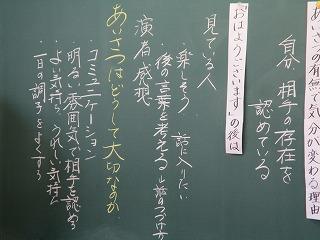 あいさつの有無で気分が変わる理由
自分、相手の存在を
認めている
「おはようございます」の後は
見ている人
・楽しそう 話に入りたい
・後の言葉を考える
演者感想
あいさつはどうして大切なのか
・コミュニケーション
・明るい雰囲気で相手を認める
・よい気持ち、うれしい気持に
・一日の調子をよくする